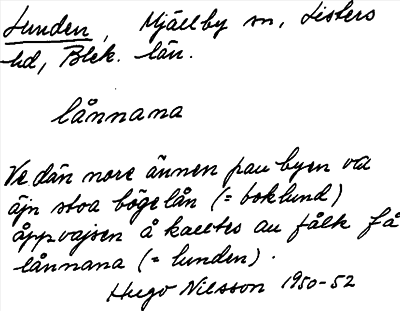 Lunden, Mjällby sn, Listers
hd, Blek. län.
lånnana
Ve dän nore ännen pau byen va
äjn stoa bögelån (= boklund)
åppvajsen å kaltes au fålk få
lånnana (= lunden).
Hugo Nilsson 1950-52